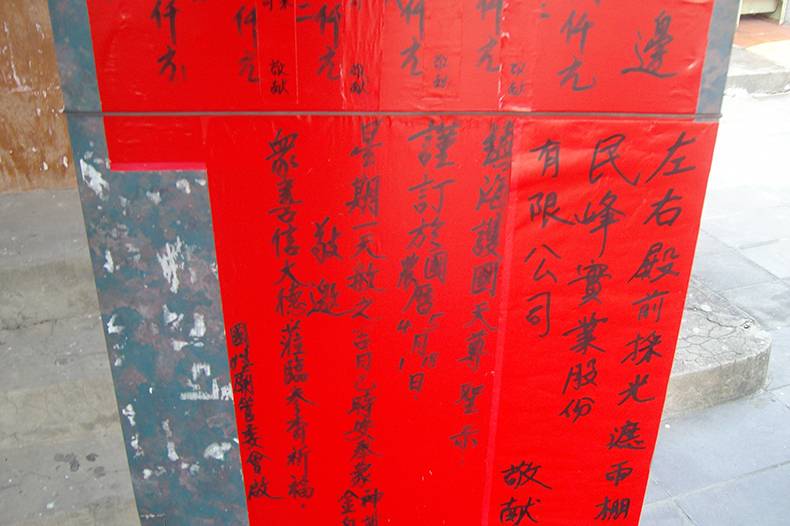 邊
仟元
敬献
仟元
敬献
仟元
敬献
仟元
敬献
仟元
仟元
左右殿前採光遮雨棚
民峰實業股份
有限公司
敬献
鎮海護國天尊聖示
謹訂於國曆5月18日
農曆4月1
星期一天赦之吉日巳時
敬邀
眾善信大德蒞臨參香祈福。
管委會啟